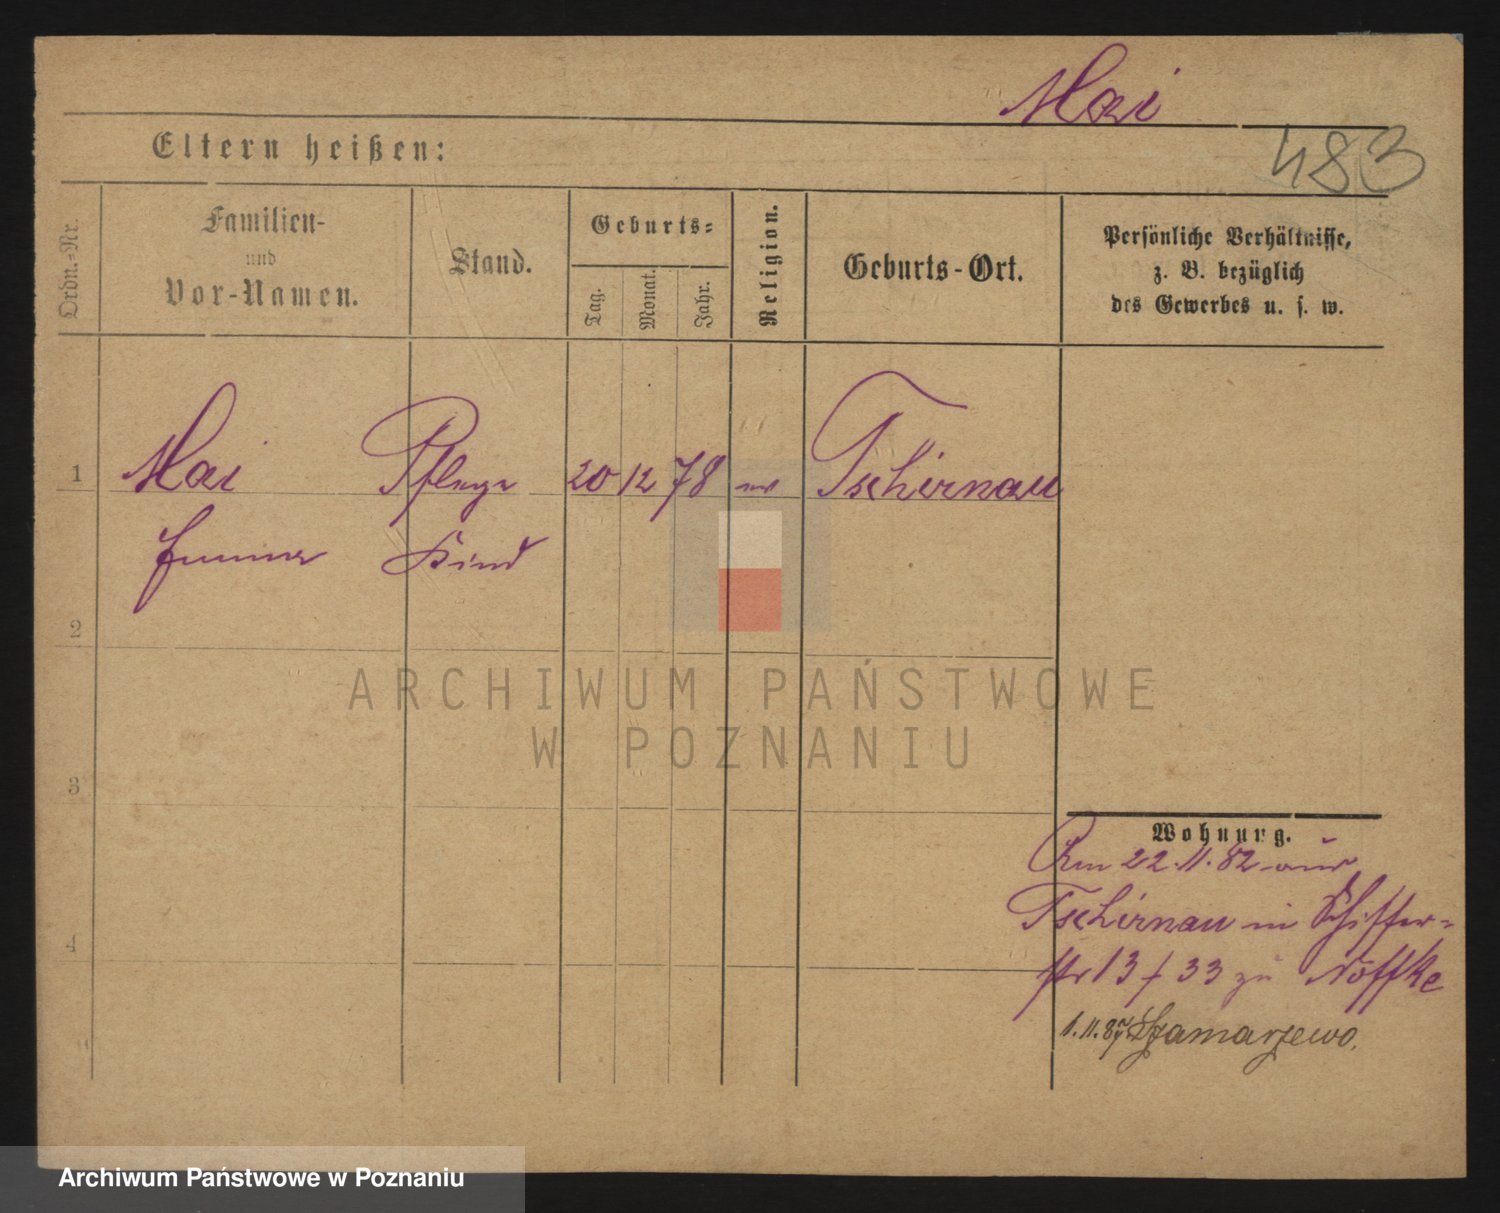 Mai
483
Eltern heißen:
Ordn.-Nr.
Familien-
und
Vor-Namen.
Stand.
Geburts-
Tag.
Monat.
Jahr.
Religion.
Geburts-Ort.
Persönliche Verhältnisse,
z. B. bezüglich
des Gewerbes u. s. w.
1 Mai Pflege 20 12 78 ev Tschirnau
Emma Kind
2
3
4
ARCHIWUM PAŃSTWOWE
W POZNANIU
Wohnung.
Am 22.11.82 aus
Tschirnau in Schiffer-
str 13 f 33 zu Nöffke
1.11.87 Szamarzewo.
Archiwum Państwowe w Poznaniu